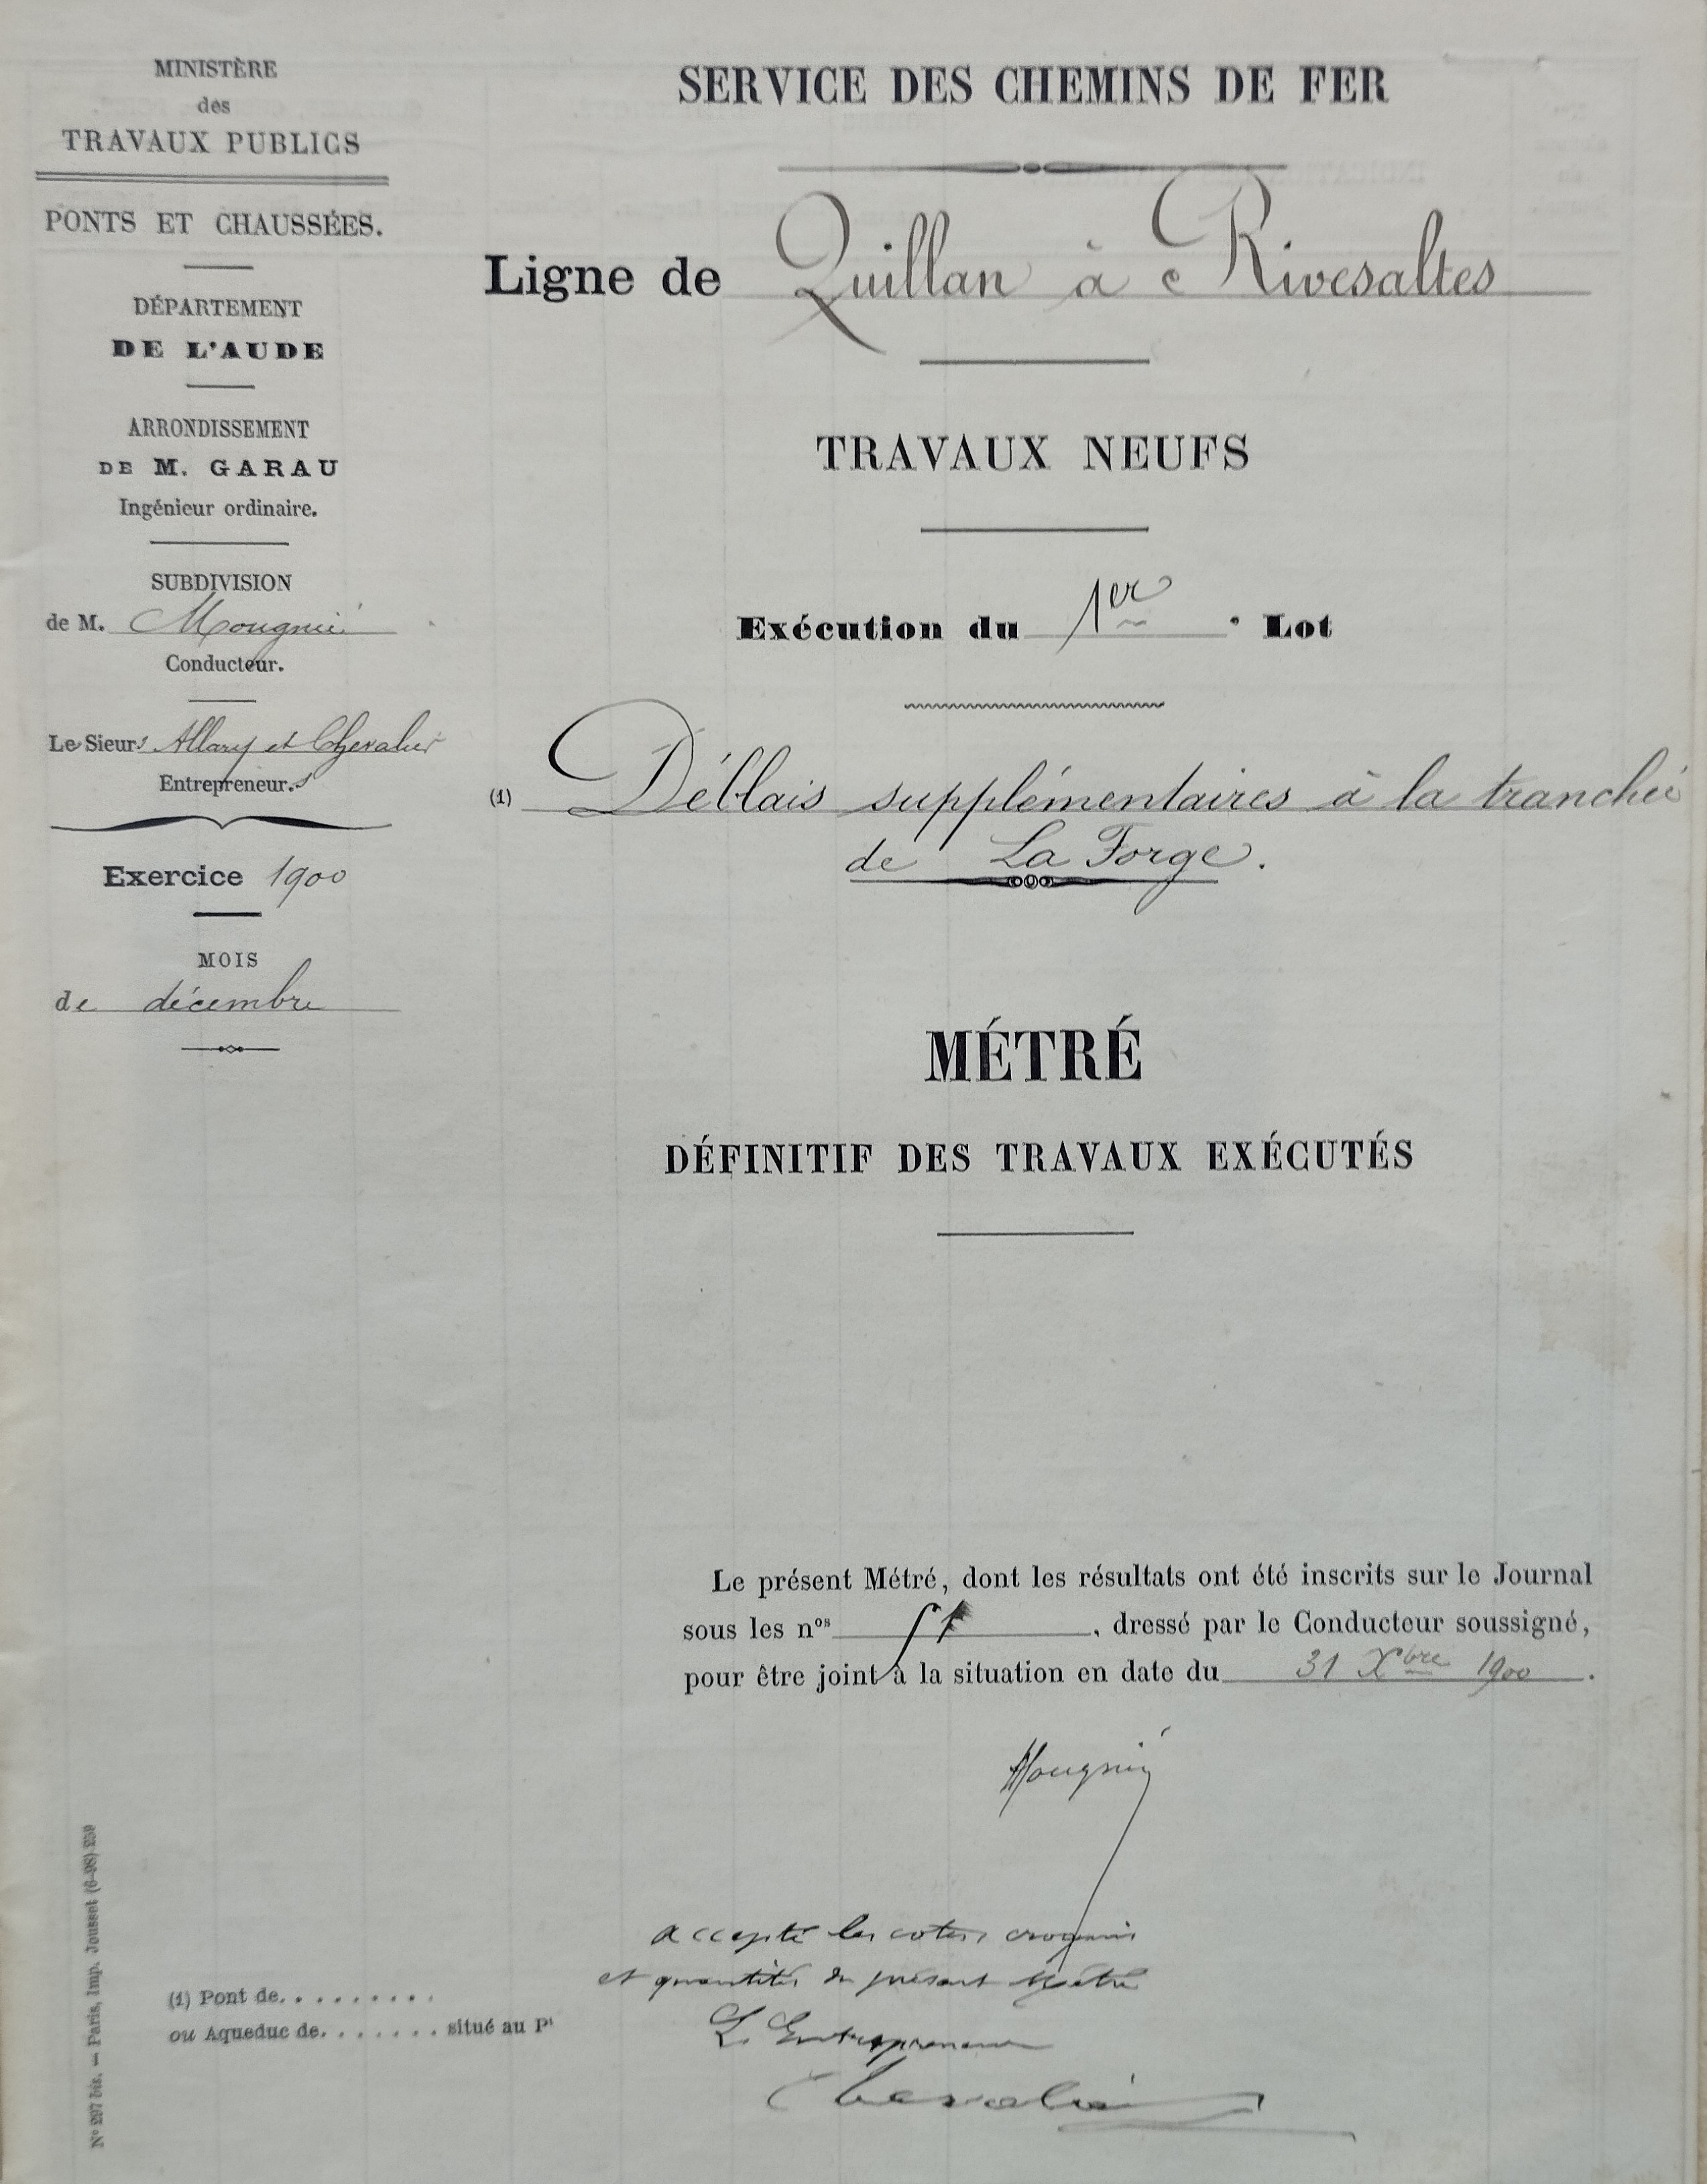 MINISTÈRE
des
TRAVAUX PUBLICS
PONTS ET CHAUSSÉES.
DÉPARTEMENT
DE L'AUDE
ARRONDISSEMENT
DE M. GARAU
Ingénieur ordinaire.
SUBDIVISION
de M. Mougnié
Conducteur.
Le Sieurs Allary et Chevalier
Entrepreneur.s
Exercice 1900
MOIS
de décembre
SERVICE DES CHEMINS DE FER
Ligne de Quillan à Rivesaltes
TRAVAUX NEUFS
Exécution du 1er Lot
(1) Déblais supplémentaires à la tranchée
de La Forge.
MÉTRÉ
DÉFINITIF DES TRAVAUX EXÉCUTÉS
Le présent Métré, dont les résultats ont été inscrits sur le Journal
sous les nos , dressé par le Conducteur soussigné,
pour être joint à la situation en date du 31 Xbre 1900.
Mougnié
accepté les cotes, croquis
et quantités du présent Métré
L'Entrepreneur
Chevalier
(1) Pont de. . . . . . . . .
ou Aqueduc de. . . . . . . situé au Pt
No 297 bis. — Paris, Imp. Jousset (6-98) 259